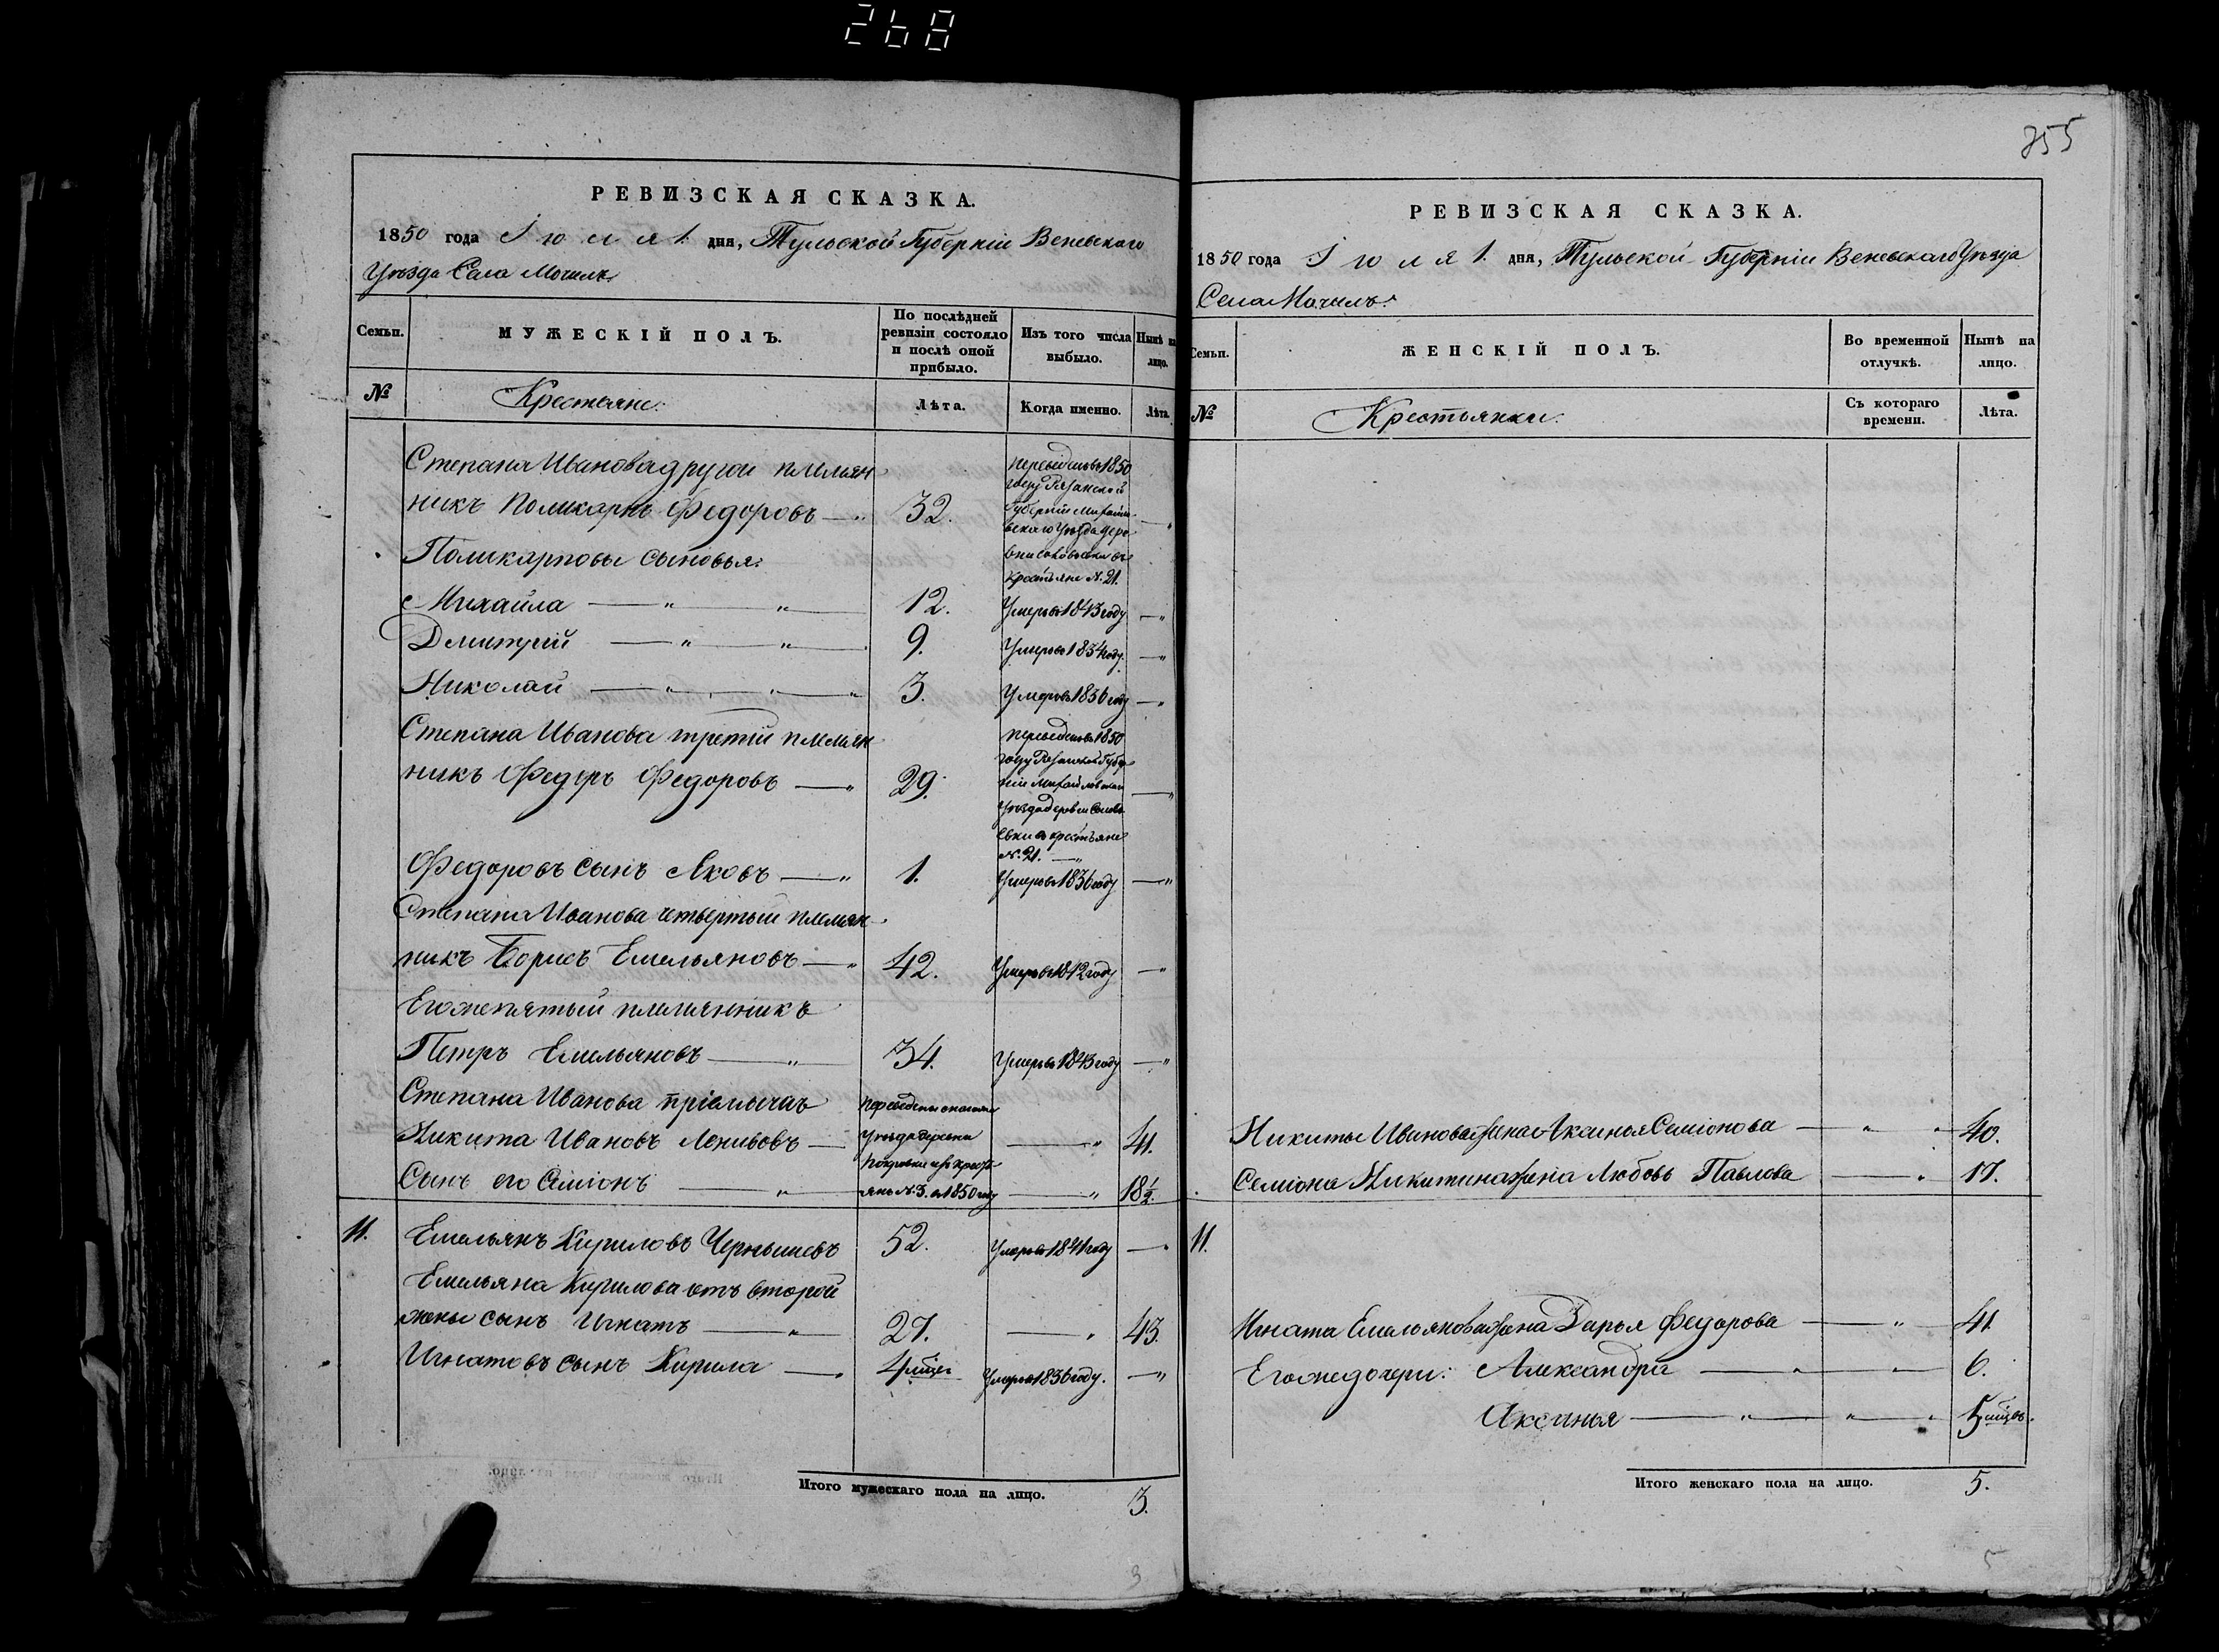 268
РЕВИЗСКАЯ СКАЗКА.
1850 года Іюля 1. дня, Тульской Губерніи Веневскаго
Уѣзда Села Мочилъ.
Семьи.
МУЖЕСКІЙ ПОЛЪ.
По послѣдней
ревизіи состояло
и послѣ оной
прибыло.
Изъ того числа
выбыло.
Нынѣ на
лицо.
№
Крестьяне:
Лѣта.
Когда именно.
Лѣта.
Степана Иванова другой племян
никъ Поликарпъ Федоровъ — " 32.
переведенъ 1850
году Рязанской
Губерніи Михайло
вскаго Уѣзда дерев
въ
крестьяне N. 21. — "
Поликарповы сыновья:
Михайла — " " — 12. Умеръ въ 1843 году — "
Дмитрій — " " — 9. Умеръ въ 1834 году. — "
Николай — " " — " 3. Умеръ въ 1836 году — "
Степана Иванова третій племян
никъ Федръ Федоровъ — " 29.
переведенъ въ 1850
году Рязанской Губер
ніи Михайловскаго
Уѣзда деревни
въ крестьяне
N. 21. — "
Федоровъ сынъ Яковъ — " 1. Умеръ въ 1836 году — "
Степана Иванова четвертый племян
никъ Борисъ Емельяновъ — " 42. Умеръ въ 1842 году — "
Его же пятый племянникъ
Петръ Емельяновъ — " — 34. Умеръ въ 1843 году — "
Степана Иванова пріемышъ
Никита Ивановъ Лenивовъ — — " 41.
Сынъ его Семіонъ — " — — " 18 ½.
переведены
Уѣзда деревни
Покровки изъ кресть
янъ N. 3. въ 1850 году
11. Емельянъ Кириловъ Чернышевъ 52. Умеръ въ 1841 году — "
Емельяна Кирилова отъ второй
жены сынъ Игнатъ — " — 27. — " 43.
Игнатовъ сынъ Кирила — " 4 мѣсяц Умеръ въ 1836 году. — "
Итого мужескаго пола на лицо. 3.
3
355
РЕВИЗСКАЯ СКАЗКА.
1850 года Іюля 1. дня, Тульской Губерніи Веневскаго Уѣзда
Села Мочилъ.
Семьи.
ЖЕНСКІЙ ПОЛЪ.
Во временной
отлучкѣ.
Нынѣ на
лицо.
№
Крестьянки.
Съ котораго
времени.
Лѣта.
Никиты Иванова жена Аксинья Семіонова — " " 40.
Семіона Никитина жена Любовь Павлова — " 17.
11.
Игната Емельянова жена Дарья Федорова — " — 41.
Его же дочери: Александра — " " — 6.
Аксинья — " — " — " 5 мѣсяц.
Итого женскаго пола на лицо. 5.
5